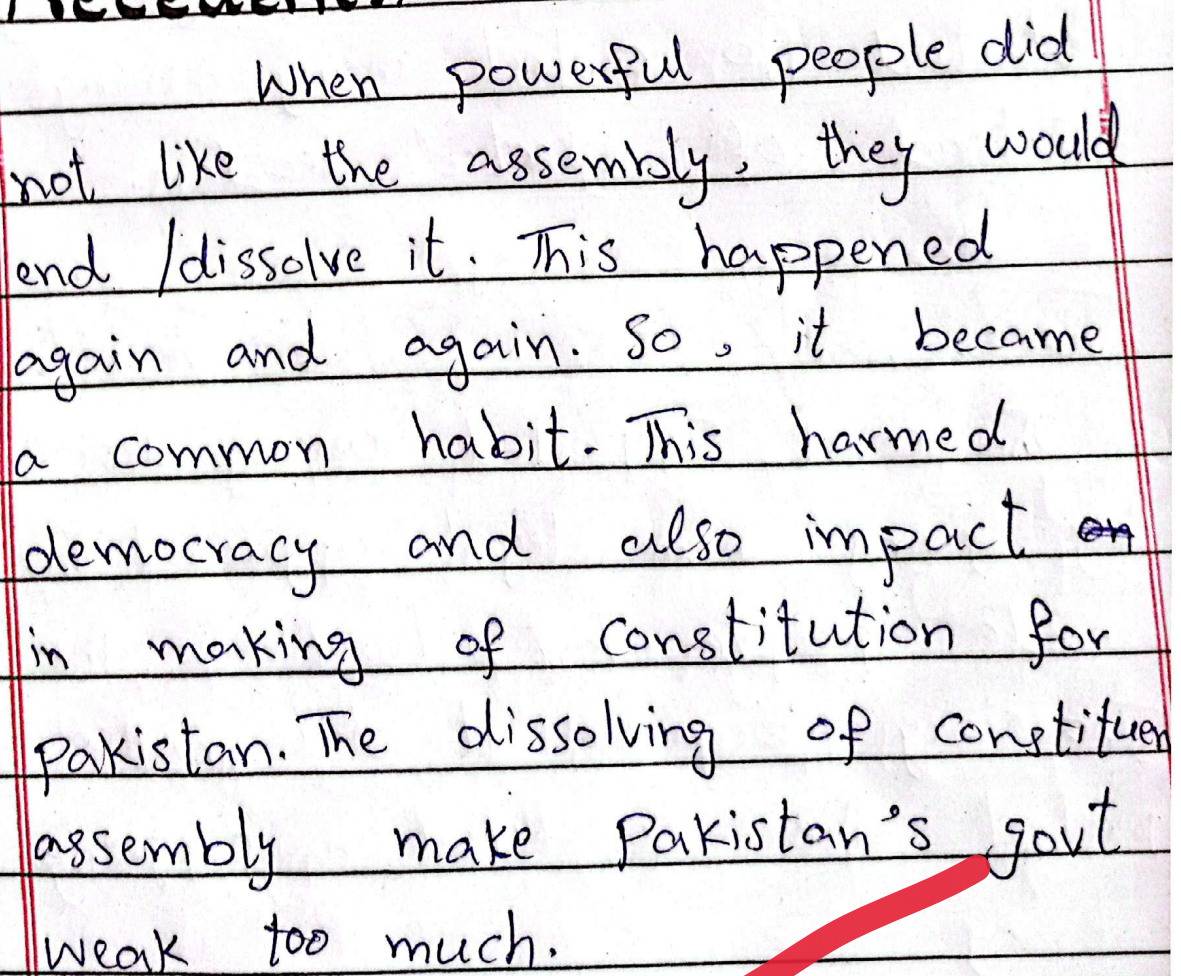 When powerful people did
not like the assembly, they would
end /dissolve it. This happened
again and again. So, it became
a common habit. This harmed
democracy and also impact
in making of constitution for
Pakistan. The dissolving of constituen
assembly make Pakistan's govt
weak too much.